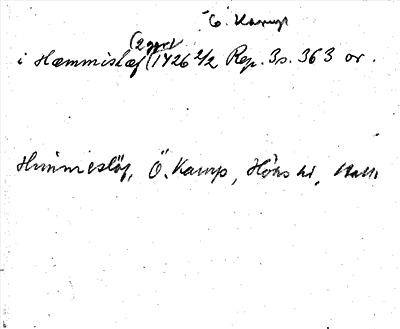 Ö. Karup
(2 gge)
i Hæmmislæf (1426 2/2 Rep. 3 s. 363 or.
Himmeslöf, Ö. Karup, Höks hd, Hall.